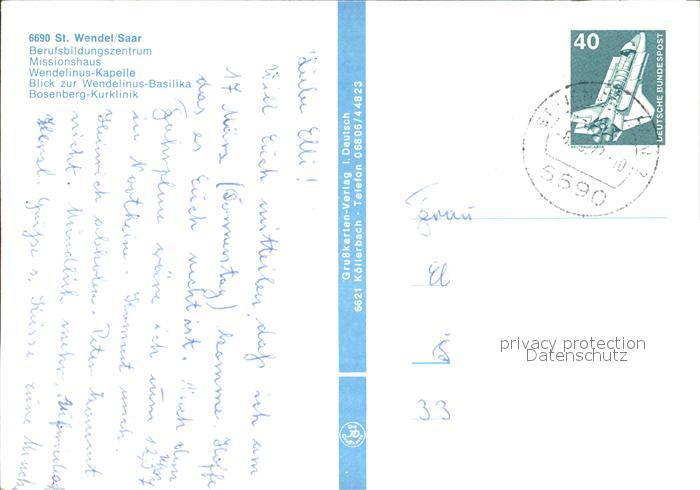 6690 St. Wendel/Saar
Berufsbildungszentrum
Missionshaus
Wendelinus-Kapelle
Blick zur Wendelinus-Basilika
Bosenberg-Kurklinik
Liebe Elli!
Will Euch mitteilen, daß ich am
17. März (Donnerstag) komme. Hoffe
das es Euch recht ist. Nach dem
Fahrplan wäre ich um 12
in Northeim. Kommt mich
Heinrich abholen. Peter kommt
nicht. Mündlich mehr.
Herzl. Grüße u. Küsse eine
Grußkarten-Verlag I. Deutsch
6621 Köllerbach · Telefon 06806/44823
40
DEUTSCHE BUNDESPOST
6690
Frau
El
33
privacy protection
Datenschutz